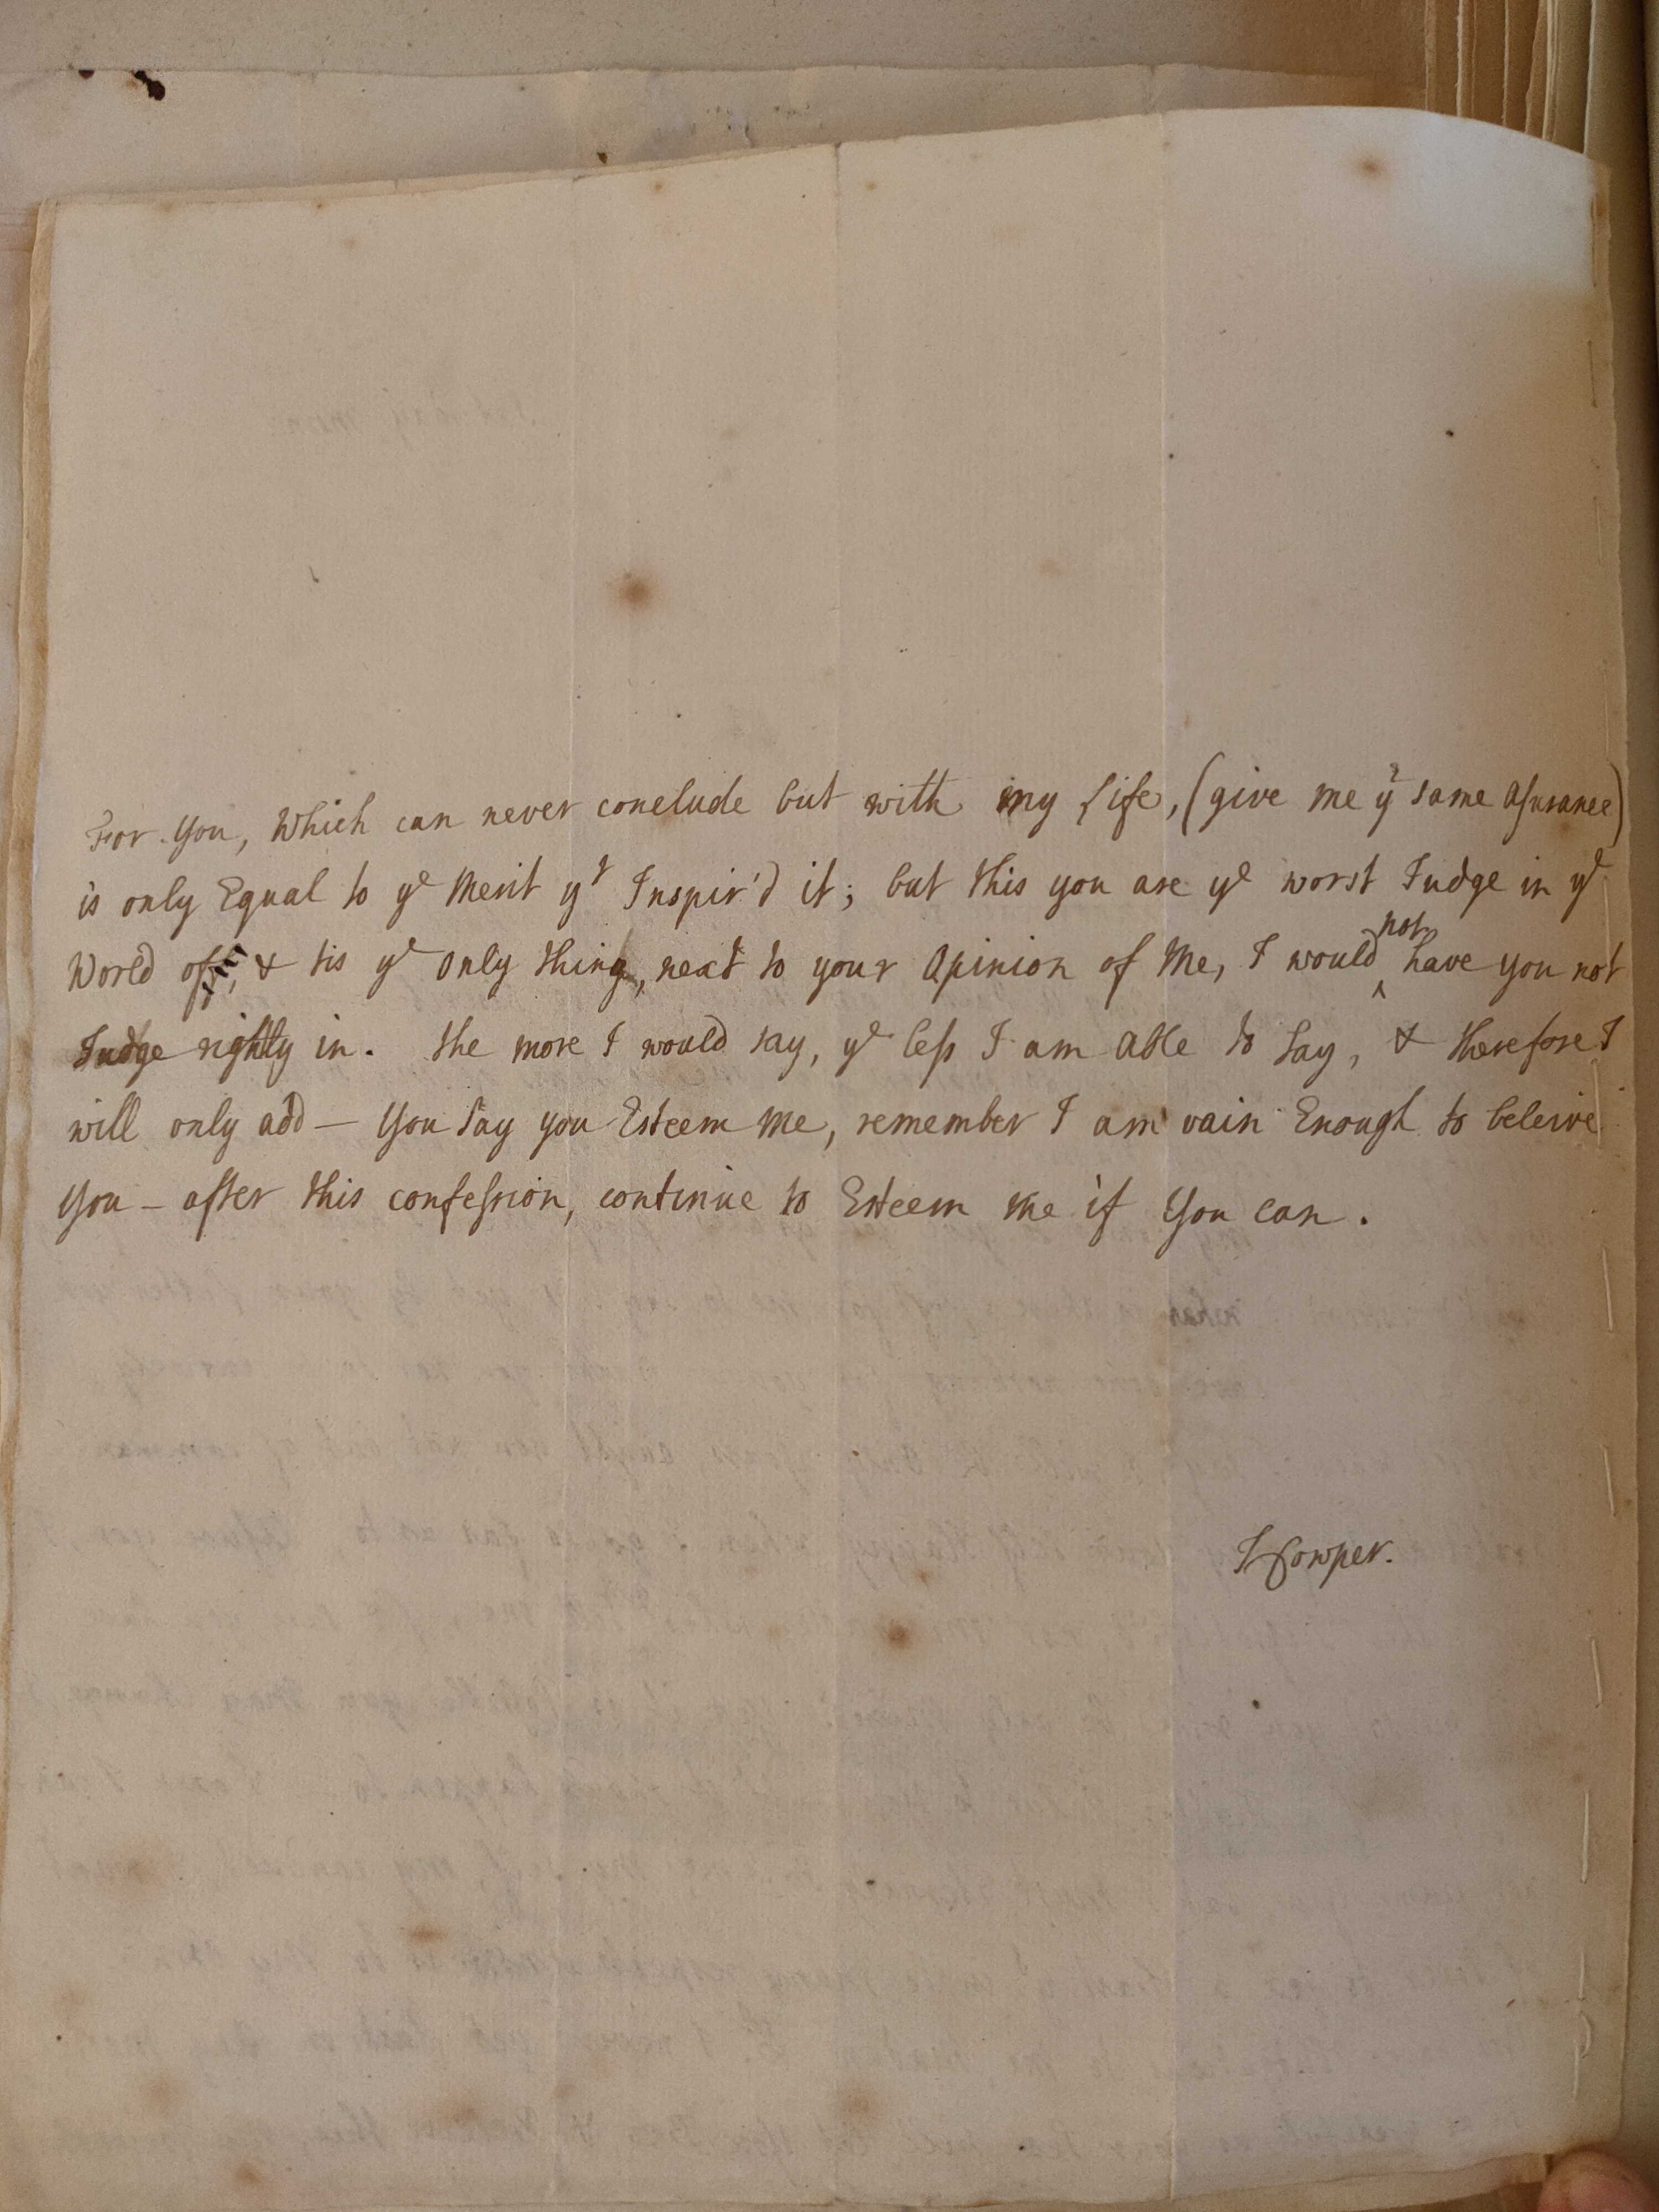 For You, Which can never conclude but with my Life, (give me yᵉ same Assurance)
is only Equal to yᵉ Merit yᵗ Inspir'd it; but this you are yᵉ worst Judge in yᵉ
World off, & tis yᵉ only thing, next to your Opinion of Me, I would not have you not
Judge rightly in. the more I would say, yᵉ less I am Able to Say, & therefore I
will only add — You Say you Esteem Me, remember I am vain Enough to beleive
You — after this confession, continue to Esteem Me if You can.
J Cowper.